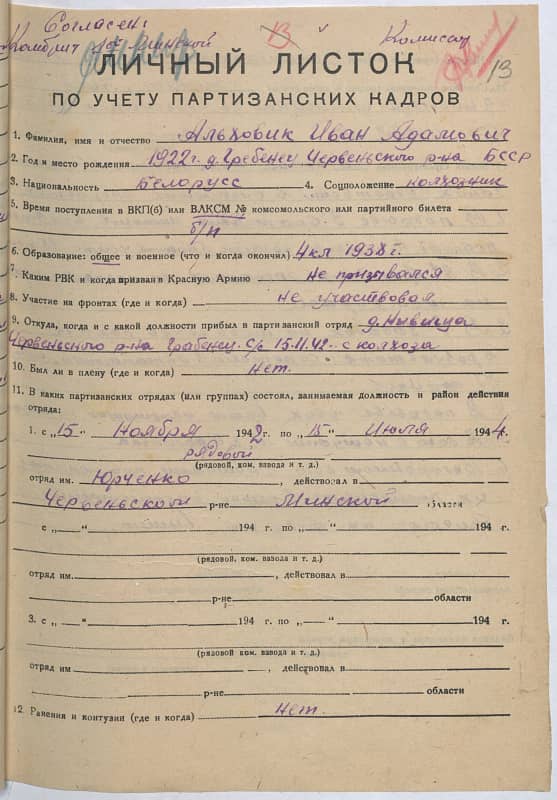 Согласен:
Комбриг Минской Комиссар
13
13
ЛИЧНЫЙ ЛИСТОК
ПО УЧЕТУ ПАРТИЗАНСКИХ КАДРОВ
1. Фамилия, имя и отчество Альховик Иван Адамович
2. Год и место рождения 1922 г. д. Гребенец Червеньского р-на БССР
3. Национальность Белорусс 4. Соцположение колхозник
5. Время поступления в ВКП(б) или ВЛКСМ № комсомольского или партийного билета
б/п
6. Образование: общее и военное (что и когда окончил) 4 кл 1938 г.
7. Каким РВК и когда призван в Красную Армию Не призывался
8. Участие на фронтах (где и когда) не участвовал
9. Откуда, когда и с какой должности прибыл в партизанский отряд д.
Червеньского р-на Грабенец. С/с 15.11.42 - с колхоза
10. Был ли в плену (где и когда) нет.
11. В каких партизанских отрядах (или группах) состоял, занимаемая должность и район действия
отряда:
1. с „15" Ноября 1942 г. по „15" Июля 1944 г.
рядовой
(рядовой, ком. взвода и т. д.)
отряд им. Юрченко, действовал в
Червеньской р-не Минской области
с „ " 194 г. по „ " 194 г.
(рядовой, ком. взвода и т. д.)
отряд им. , действовал в
р-не области
3. с „ " 194 г. по „ " 194 г.
(рядовой, ком. взвода и т. д.)
отряд им. , действовал в
р-не области
12. Ранения и контузии (где и когда) нет.